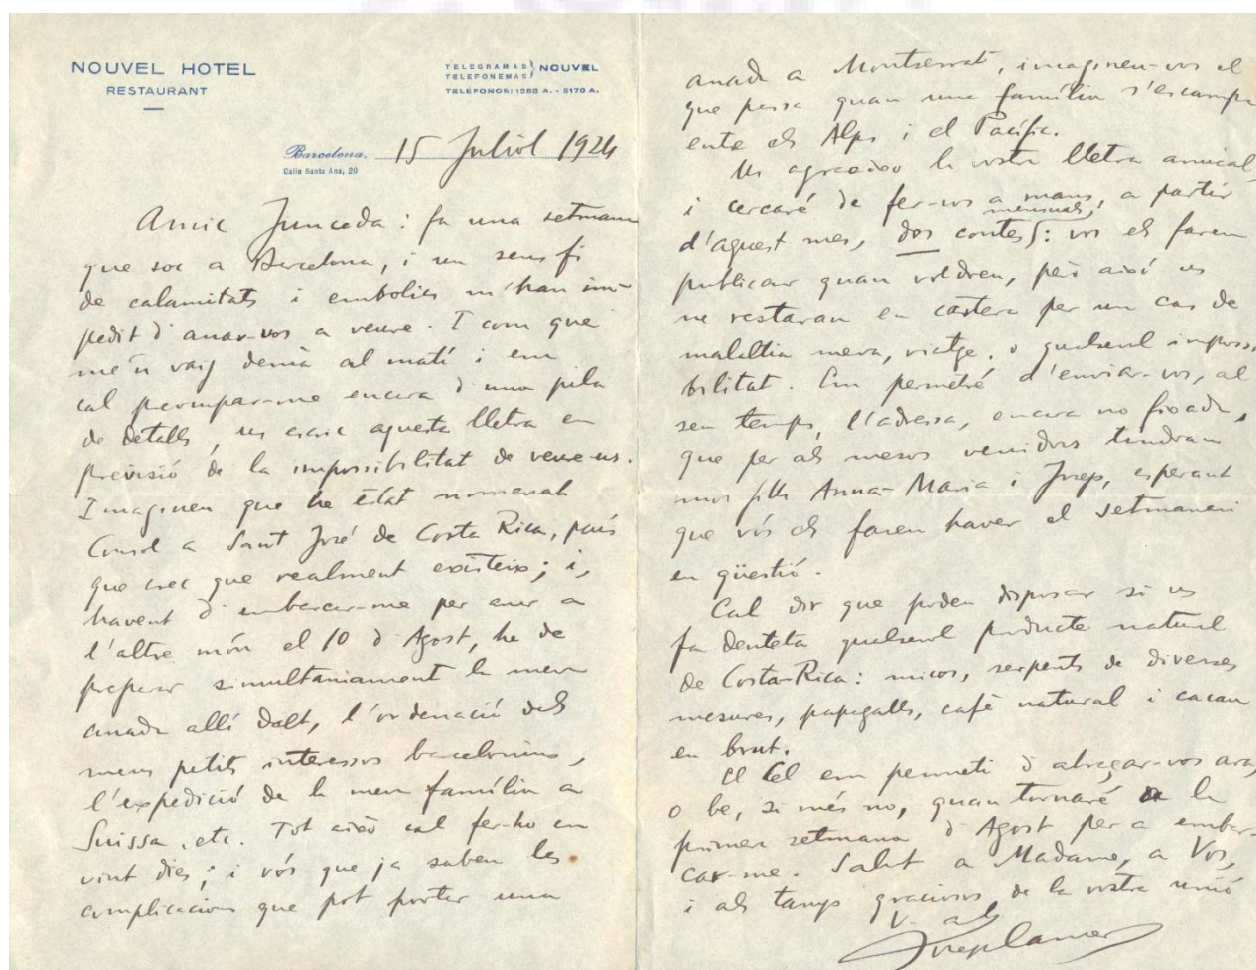 NOUVEL HOTEL
RESTAURANT
TELEGRAMAS
TELEFONEMAS } NOUVEL
TELÉFONOS: 1288 A. - 5170 A.
Barcelona, 15 Juliol 1924
Calle Santa Ana, 20
Amic Junceda: fa una setmana
que soc a Barcelona, i un sens fi
de calamitats i embolics m'han im-
pedit d'anar-vos a veure. I com que
me'n vaig demà al matí i em
cal preocupar-me encara d'una pila
de detalls, us escric aquesta lletra en
previsió de la impossibilitat de veure-us.
Imagineu que he estat nomenat
Consol a Sant José de Costa Rica, país
que crec que realment existeix; i,
havent d'embarcar-me per anar a
l'altre món el 10 d'Agost, he de
preparar simultàniament la meva
anada allí dalt, l'ordenació dels
meus petits interessos barcelonins,
l'expedició de la meva família a
Suïssa, etc. Tot això cal fer-ho en
vint dies; i vós que ja sabeu les
complicacions que pot portar una
anada a Montserrat, imagineu-vos el
que passa quan una família s'escampa
entre els Alps i el Pacífic.
Us agraeixo la vostra lletra amical,
i cercaré de fer-vos a mans, a partir
d'aquest mes, dos contes mensuals: vos els fareu
publicar quan voldreu, però així us
ne restaran en cartera per un cas de
malaltia meva, viatge, o qualsevol impossi
bilitat. Em permetré d'enviar-vos, al
seu temps, l'adressa, encara no fixada,
que per als mesos venidors tindran
mos fills Anna-Maria i Josep, esperant
que vós els fareu haver el setmanari
en qüestió.
Cal dir que podeu disposar si us
fa denteta qualsevol producte natural
de Costa-Rica: micos, serpents de diverses
mesures, papagalls, cafè natural i cacau
en brut.
El Cel em permeti d'abraçar-vos ara,
o be, si més no, quan tornaré la
primera setmana d'Agost per a embar-
car-me. Salut a Madame, a Vos,
i als tanys graciosos de la vostra unió
Josep Carner